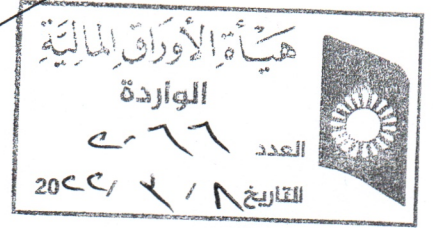 هيأة الأوراق المالية
الواردة
العدد ٢٠٦٦
التاريخ ٨ / ٣ / 20٢٢